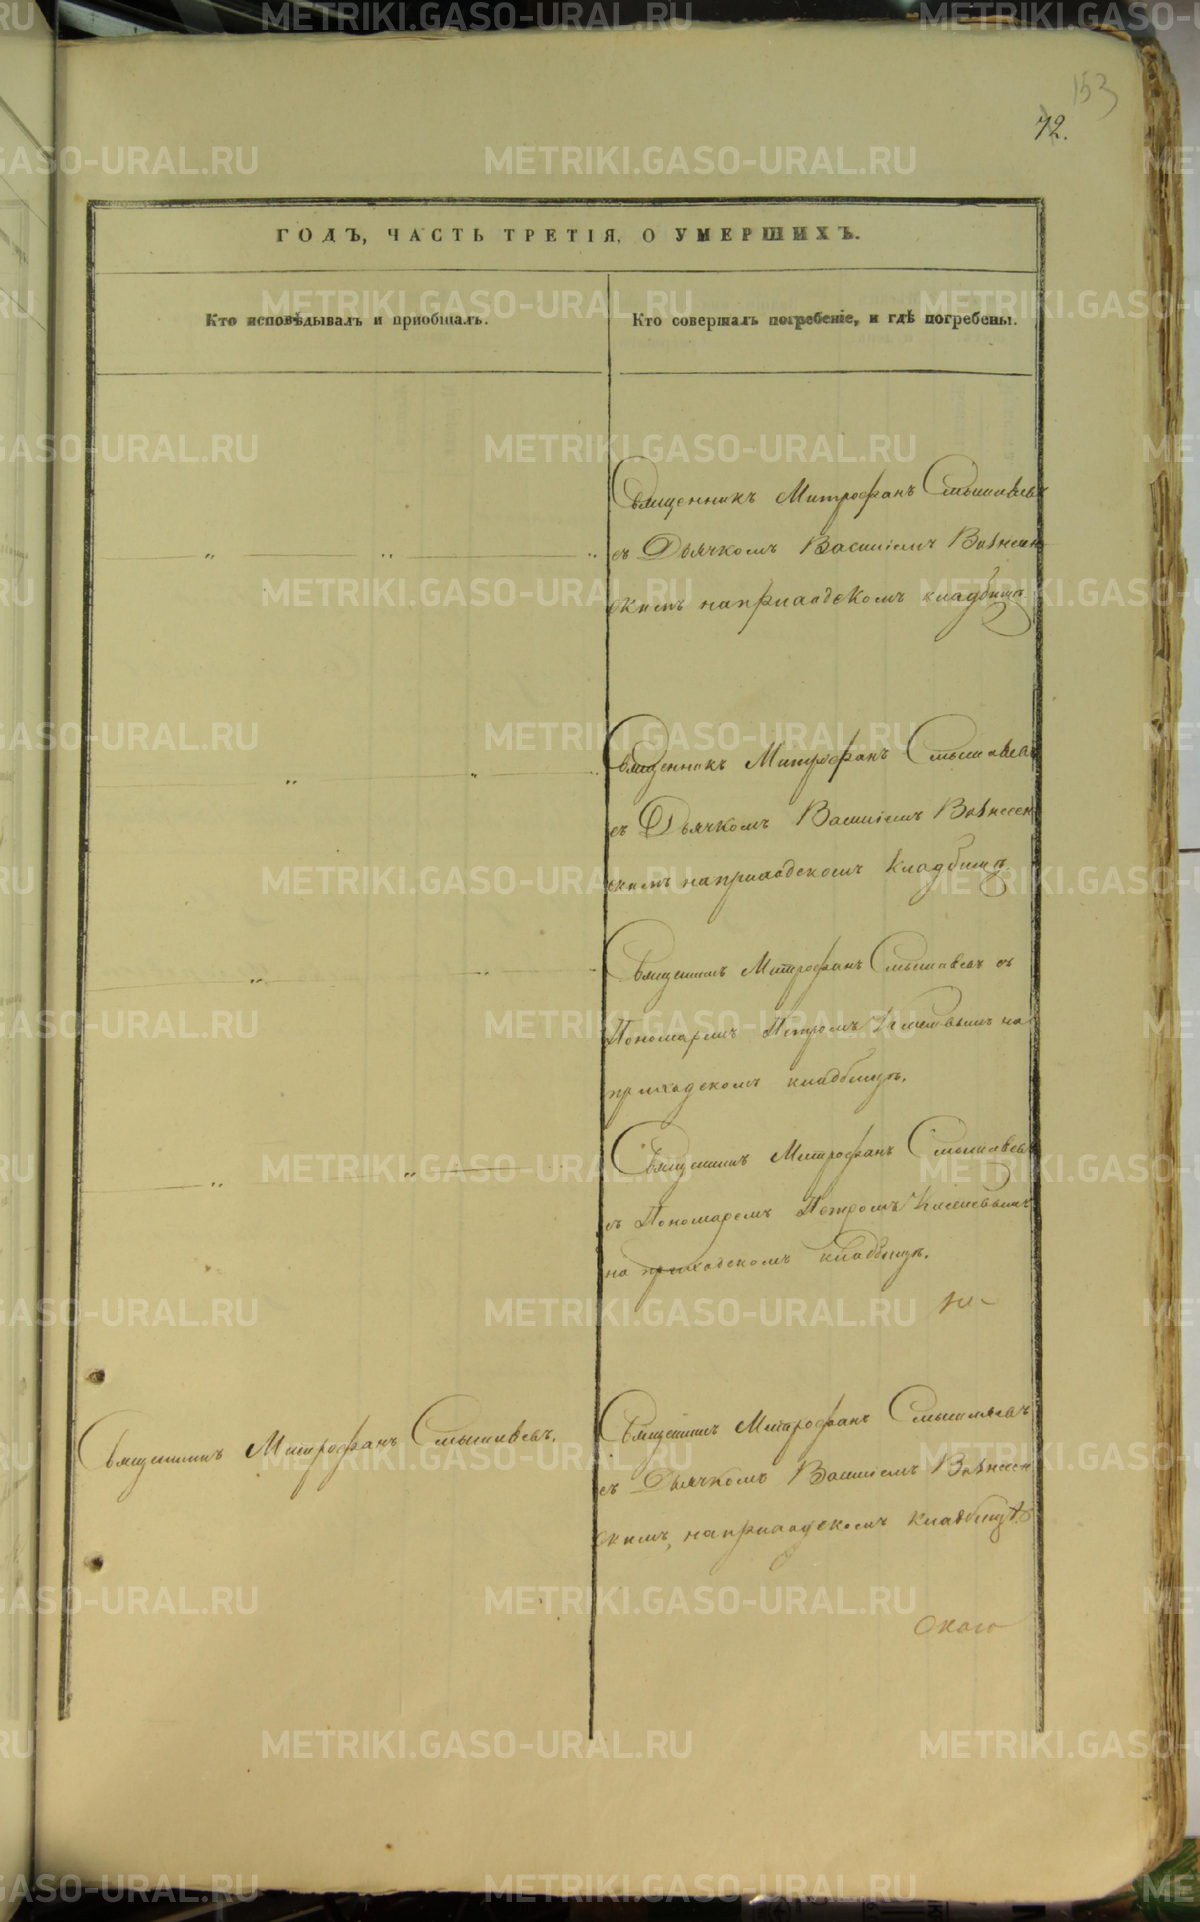 153
72.
ГОДЪ, ЧАСТЬ ТРЕТІЯ, О УМЕРШИХЪ.
Кто исповѣдывалъ и пріобщалъ.
Кто совершалъ погребеніе, и гдѣ погребены.
Священникъ Митрофанъ Смышляевъ
съ Дьячкомъ Василіемъ Вознесен
скимъ на приходскомъ кладбищѣ
Священникъ Митрофанъ Смышляевъ
съ Дьячкомъ Василіемъ Вознесен
скимъ на приходскомъ кладбищѣ
Священникъ Митрофанъ Смышляевъ съ
Пономаремъ Петромъ на
приходскомъ кладбищѣ.
Священникъ Митрофанъ Смышляевъ
съ Пономаремъ Петромъ
на приходскомъ кладбищѣ.
Священникъ Митрофанъ Смышляевъ.
Священникъ Митрофанъ Смышляевъ
съ Дьячкомъ Василіемъ Вознесен
скимъ, на приходскомъ кладбищѣ
скаго
METRIKI.GASO-URAL.RU